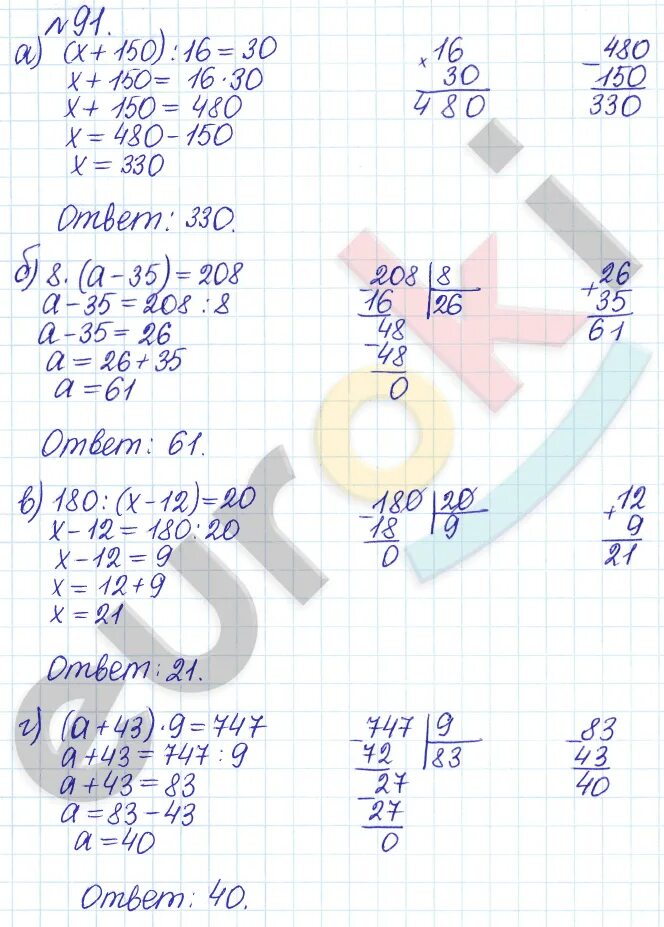 №91.
а) (x + 150) : 16 = 30
x + 150 = 16 · 30
x + 150 = 480
x = 480 - 150
x = 330
× 16
30
480
- 480
150
330
Ответ: 330.
б) 8 · (a - 35) = 208
a - 35 = 208 : 8
a - 35 = 26
a = 26 + 35
a = 61
- 208 | 8
16 | 26
- 48
48
0
+ 26
35
61
Ответ: 61.
в) 180 : (x - 12) = 20
x - 12 = 180 : 20
x - 12 = 9
x = 12 + 9
x = 21
- 180 | 20
18 | 9
0
+ 12
9
21
Ответ: 21.
г) (a + 43) · 9 = 747
a + 43 = 747 : 9
a + 43 = 83
a = 83 - 43
a = 40
- 747 | 9
72 | 83
- 27
27
0
- 83
43
40
Ответ: 40.
euroki